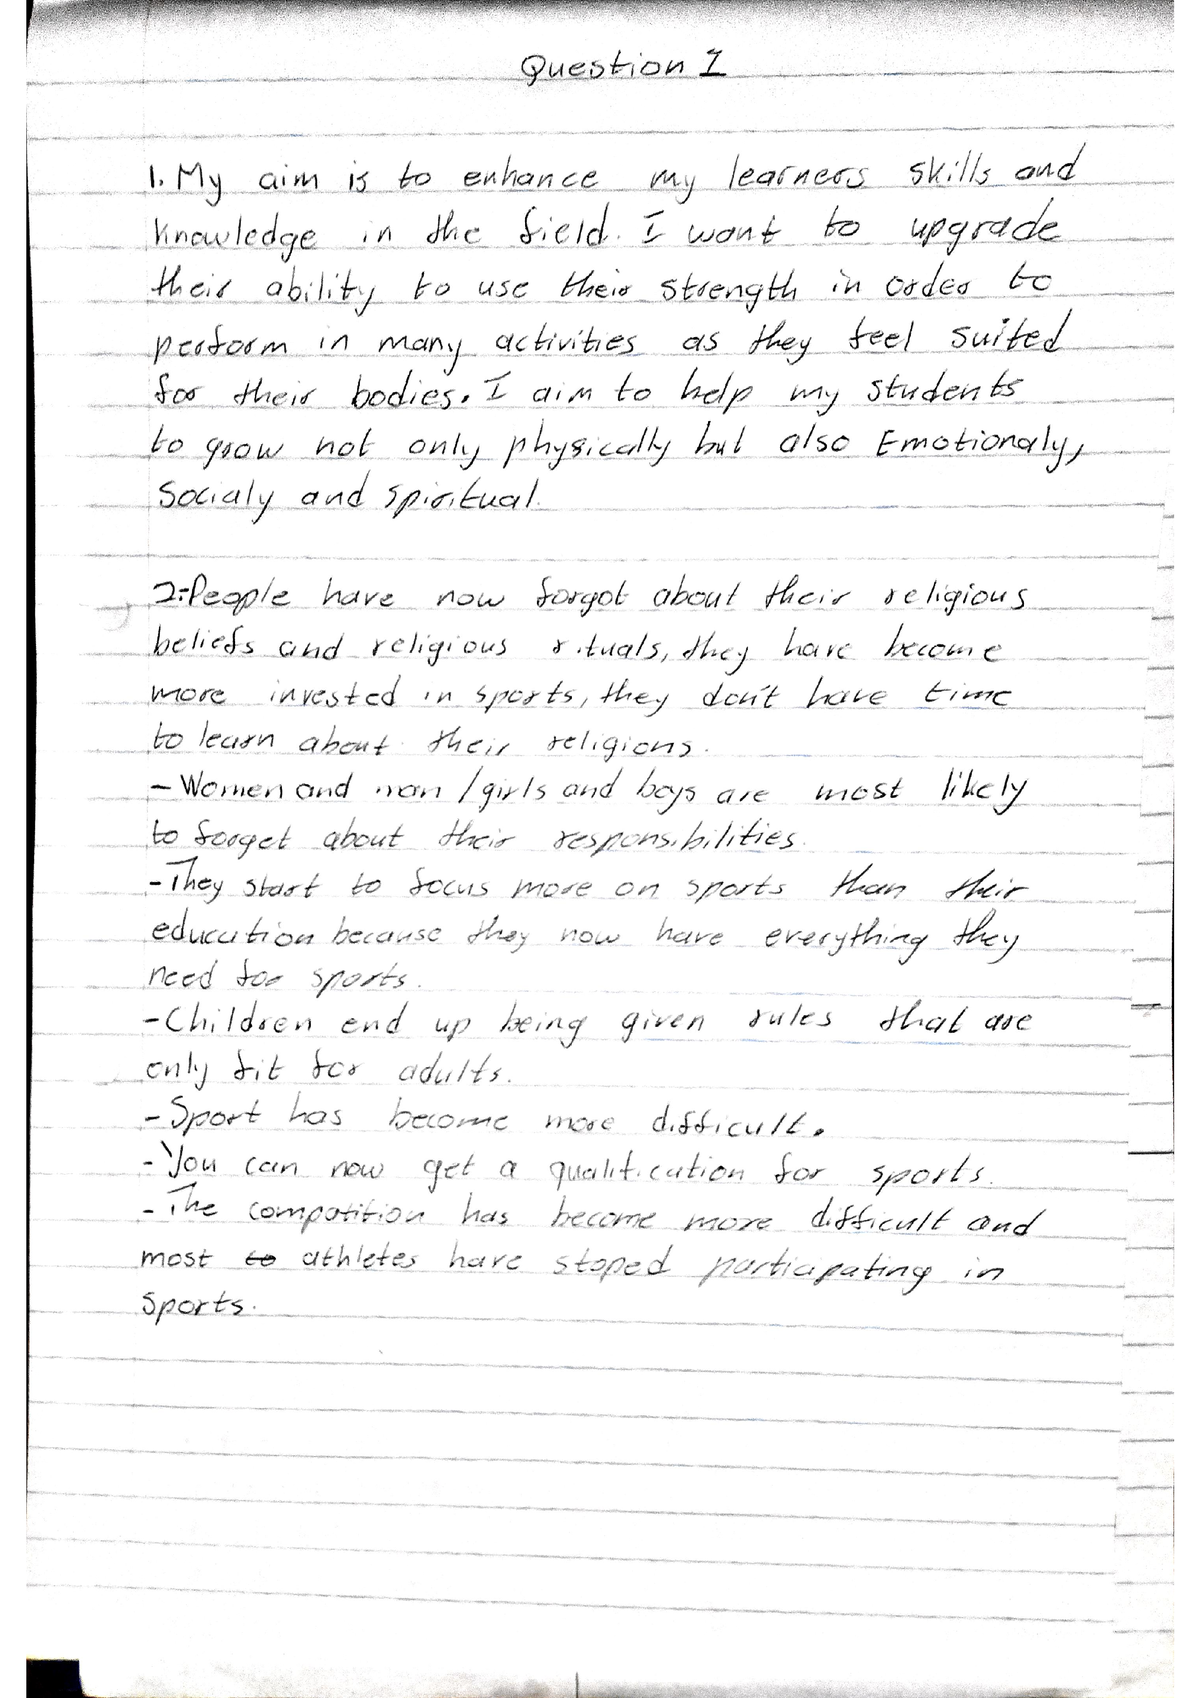 Question 1
1. My aim is to enhance my learners skills and
knowledge in the field. I want to upgrade
their ability to use their strength in order to
perform in many activities as they feel suited
for their bodies. I aim to help my students
to grow not only physically but also Emotionaly,
Socialy and spiritual.
2:People have now forgot about their religious
beliefs and religious rituals, they have become
more invested in sports, they don't have time
to learn about their religions.
- Women and man / girls and boys are most likely
to forget about their responsibilities.
- They start to focus more on sports than their
education because they now have everything they
need for sports.
- Children end up being given rules that are
only fit for adults.
- Sport has become more difficult.
- You can now get a qualification for sports.
- The compatition has become more difficult and
most to athletes have stoped participating in
sports.